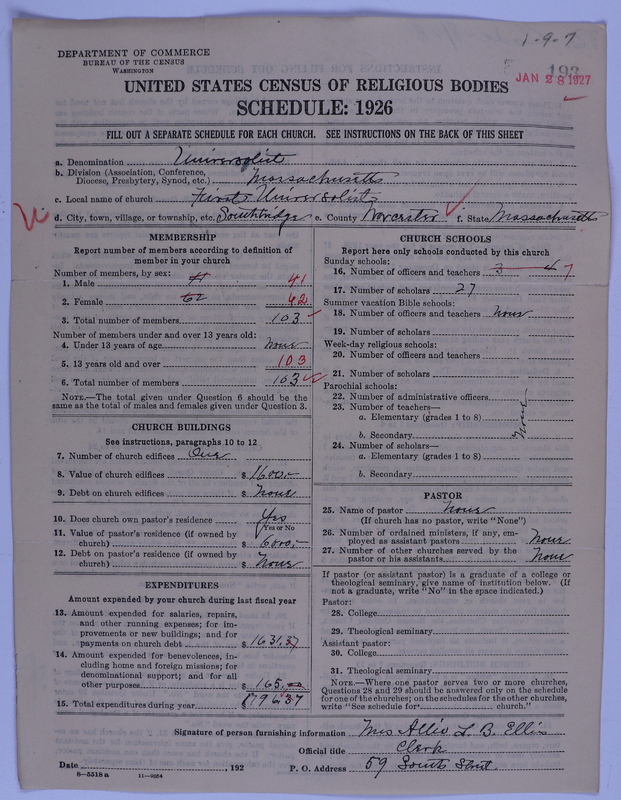 1-9-7
DEPARTMENT OF COMMERCE
BUREAU OF THE CENSUS
WASHINGTON
193
JAN 28 1927
UNITED STATES CENSUS OF RELIGIOUS BODIES
SCHEDULE: 1926
FILL OUT A SEPARATE SCHEDULE FOR EACH CHURCH. SEE INSTRUCTIONS ON THE BACK OF THIS SHEET
a. Denomination Universalist
b. Division (Association, Conference, Diocese, Presbytery, Synod, etc.) Massachusetts
c. Local name of church First Universalist
d. City, town, village, or township, etc. Southbridge e. County Worcester f. State Massachusetts
MEMBERSHIP
Report number of members according to definition of
member in your church
Number of members, by sex:
1. Male 41 41
2. Female 62 62
3. Total number of members 103
Number of members under and over 13 years old:
4. Under 13 years of age none
5. 13 years old and over 103
6. Total number of members 103
NOTE.—The total given under Question 6 should be
same as the total of males and females given under Question 3.
CHURCH BUILDINGS
See instructions, paragraphs 10 to 12
7. Number of church edifices One
8. Value of church edifices $ 1600.-
9. Debt on church edifices $ none
10. Does church own pastor's residence Yes
(Yes or No
11. Value of pastor's residence (if owned by
church) $ 6000.-
12. Debt on pastor's residence (if owned by
church) $ none
EXPENDITURES
Amount expended by your church during last fiscal year
13. Amount expended for salaries, repairs,
and other running expenses; for im-
provements or new buildings; and for
payments on church debt $ 1631.37
14. Amount expended for benevolences, in-
cluding home and foreign missions; for
denominational support; and for all
other purposes $ 165.
15. Total expenditures during year $ 1796 37
CHURCH SCHOOLS
Report here only schools conducted by this church
Sunday schools:
16. Number of officers and teachers 3 4 7
17. Number of scholars 27
Summer vacation Bible schools:
18. Number of officers and teachers none
19. Number of scholars
Week-day religious schools:
20. Number of officers and teachers
21. Number of scholars
Parochial schools:
22. Number of administrative officers
23. Number of teachers—
a. Elementary (grades 1 to 8)
none
b. Secondary
24. Number of scholars—
a. Elementary (grades 1 to 8)
b. Secondary
PASTOR
25. Name of pastor none
(If church has no pastor, write "None")
26. Number of ordained ministers, if any, em-
ployed as assistant pastors none
27. Number of other churches served by the
pastor or his assistants none
If pastor (or assistant pastor) is a graduate of a college or
theological seminary, give name of institution below. (If
not a graduate, write "No" in the space indicated.)
Pastor:
28. College
29. Theological seminary
Assistant pastor:
30. College
31. Theological seminary
NOTE.—Where one pastor serves two or more churches,
Questions 28 and 29 should be answered only on the schedule
for one of the churches; on the schedules for the other churches,
write "See schedule for church."
Signature of person furnishing information Mrs Allie L. B. Ellis
Official title Clerk
Date , 192 P. O. Address 59 South Street.
8—5518 a 11—9554